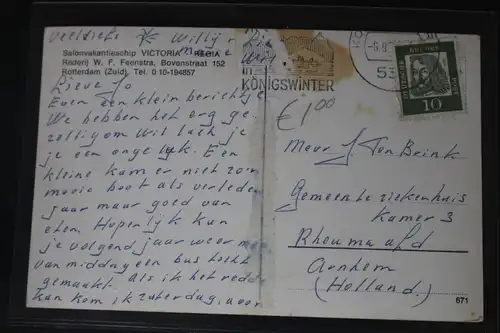 veel liefs Willy
Salonvakantieschip VICTORIA REGIA
Rederij W. F. Feenstra, Bovenstraat 152
Rotterdam (Zuid), Tel. 0 10-194857
Lieve Jo
Even een klein berichtje
We hebben het erg ge-
zellig om Wil lach je
je een ongeluk. Een
kleine kamer niet zo'n
mooie boot als verleden
jaar maar goed van
eten. Hopelijk kun
je volgend jaar weer mee
van middag een bus tocht
gemaakt. Als ik het red
kan kom ik zaterdag, voor
KÖNIGSWINTER
53
DEUTSCHE BUNDESPOST
10
€1,00
Mevr J. Ten Brink
Gemeente ziekenhuis
Kamer 3
Rheuma afd
Arnhem
(Holland)
671